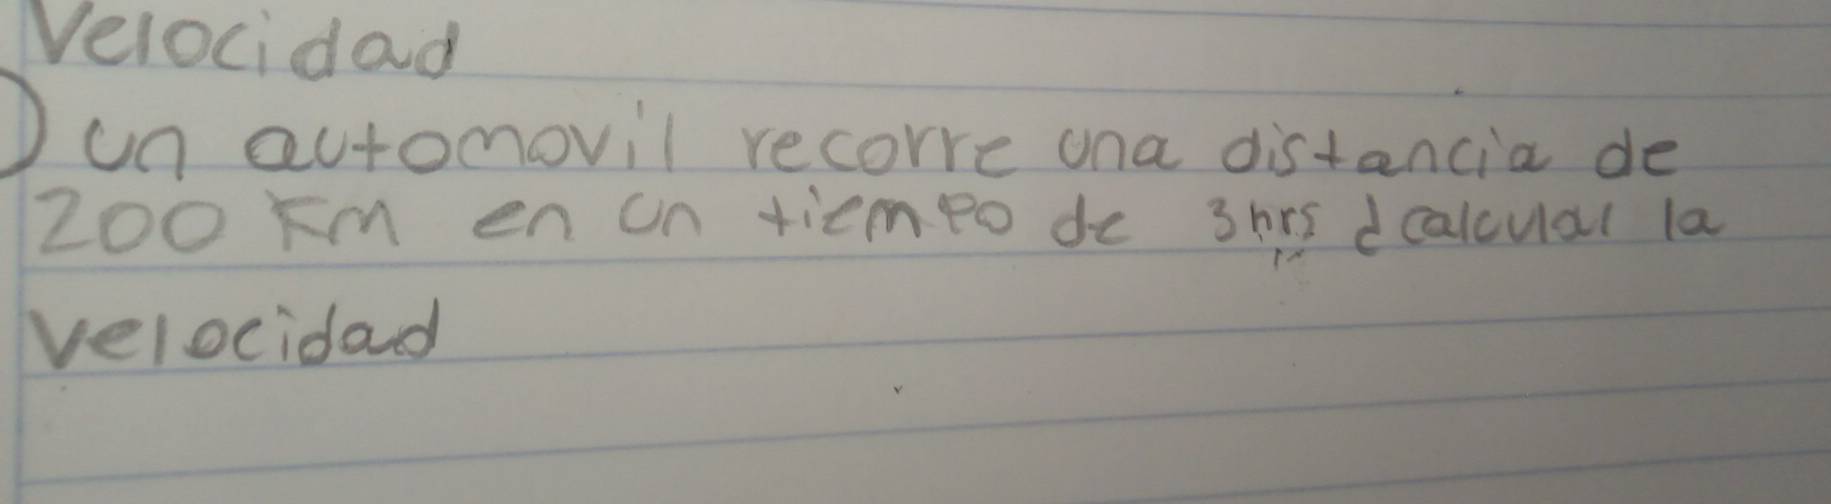 Velocidad
) un automovil recorre una distancia de
200 Km en un tiempo de 3hrs d calcular la
velocidad